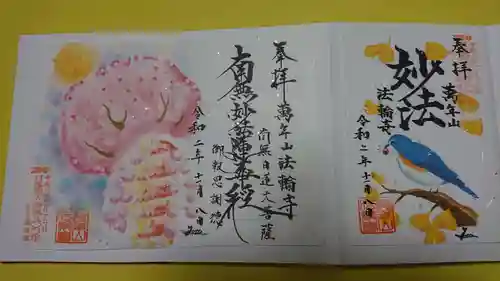 奉拝
妙法
萬年山
法輪寺
令和二年十一月八日
奉拝 萬年山法輪寺
南無日蓮大菩薩
南無妙法蓮華経
御報恩謝徳
令和二年十一月八日